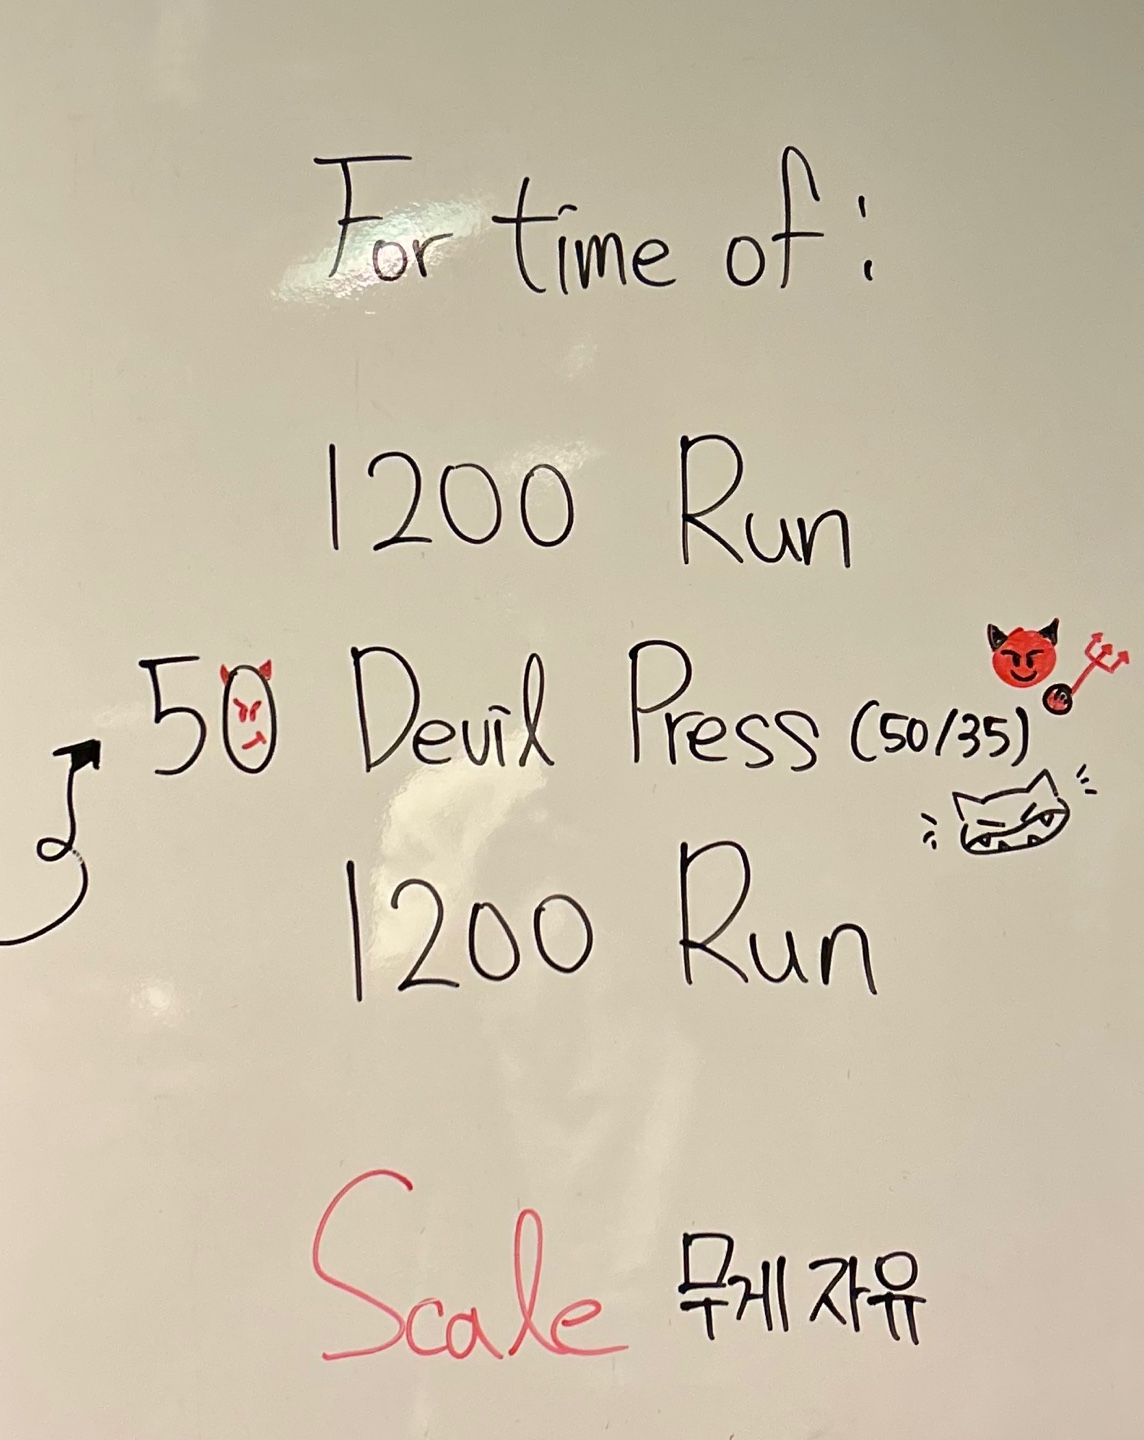 For time of:
1200 Run
50 Devil Press (50/35)
1200 Run
Scale 무게 자유